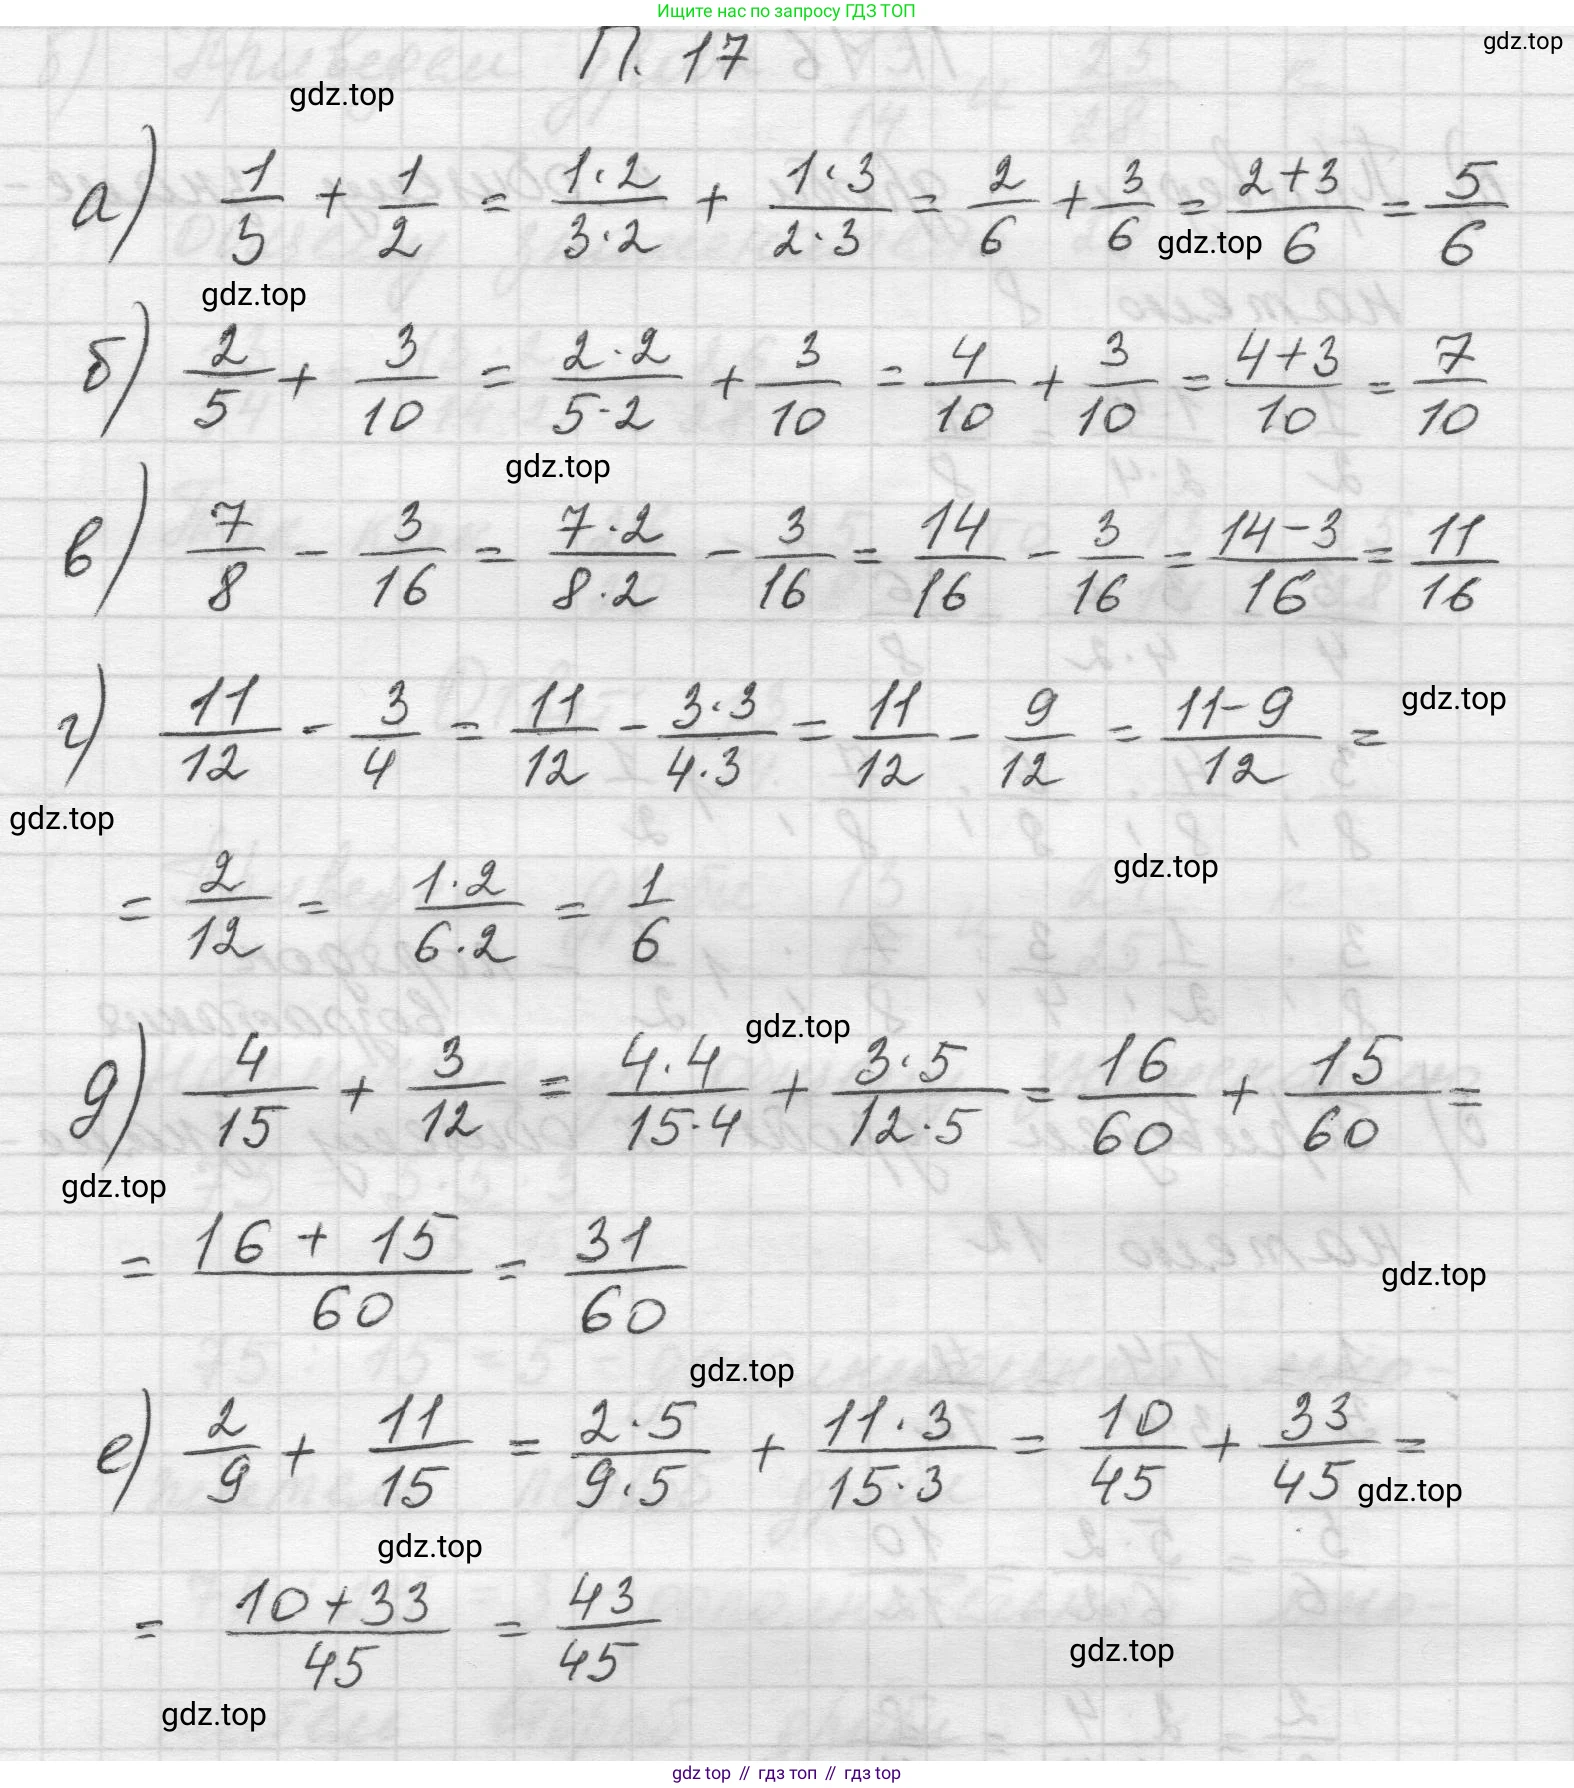 Ищите нас по запросу ГДЗ ТОП
П. 17
gdz.top
gdz.top
а) 1/3 + 1/2 = 1·2/3·2 + 1·3/2·3 = 2/6 + 3/6 = 2+3/6 = 5/6
gdz.top
gdz.top
б) 2/5 + 3/10 = 2·2/5·2 + 3/10 = 4/10 + 3/10 = 4+3/10 = 7/10
gdz.top
в) 7/8 - 3/16 = 7·2/8·2 - 3/16 = 14/16 - 3/16 = 14-3/16 = 11/16
г) 11/12 - 3/4 = 11/12 - 3·3/4·3 = 11/12 - 9/12 = 11-9/12 =
gdz.top
gdz.top
= 2/12 = 1·2/6·2 = 1/6
gdz.top
gdz.top
д) 4/15 + 3/12 = 4·4/15·4 + 3·5/12·5 = 16/60 + 15/60 =
gdz.top
= 16 + 15/60 = 31/60
gdz.top
gdz.top
е) 2/9 + 11/15 = 2·5/9·5 + 11·3/15·3 = 10/45 + 33/45 =
gdz.top
gdz.top
= 10+33/45 = 43/45
gdz.top
gdz.top
gdz top // гдз топ // гдз top